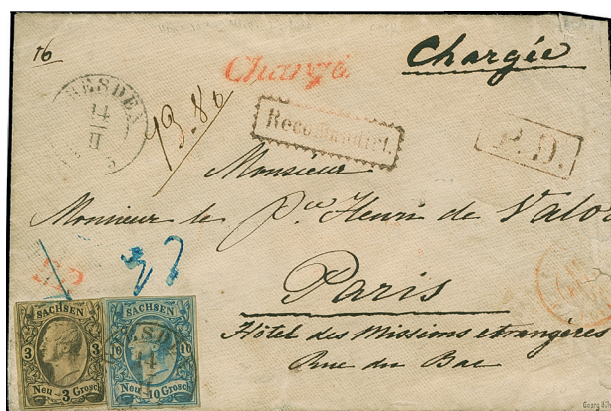 16
Chargé.
Chargée
DRESDEN
14
II
Recomandirt.
P.D.
Monsieur
Monsieur le Pce Henri de Valo
Paris
Hôtel des Missions etrangères
Rue du Bac
SACHSEN
3 3
Neu - 3 Grosch
SACHSEN
10 10
Neu - 10 Grosch
DRESDEN
14